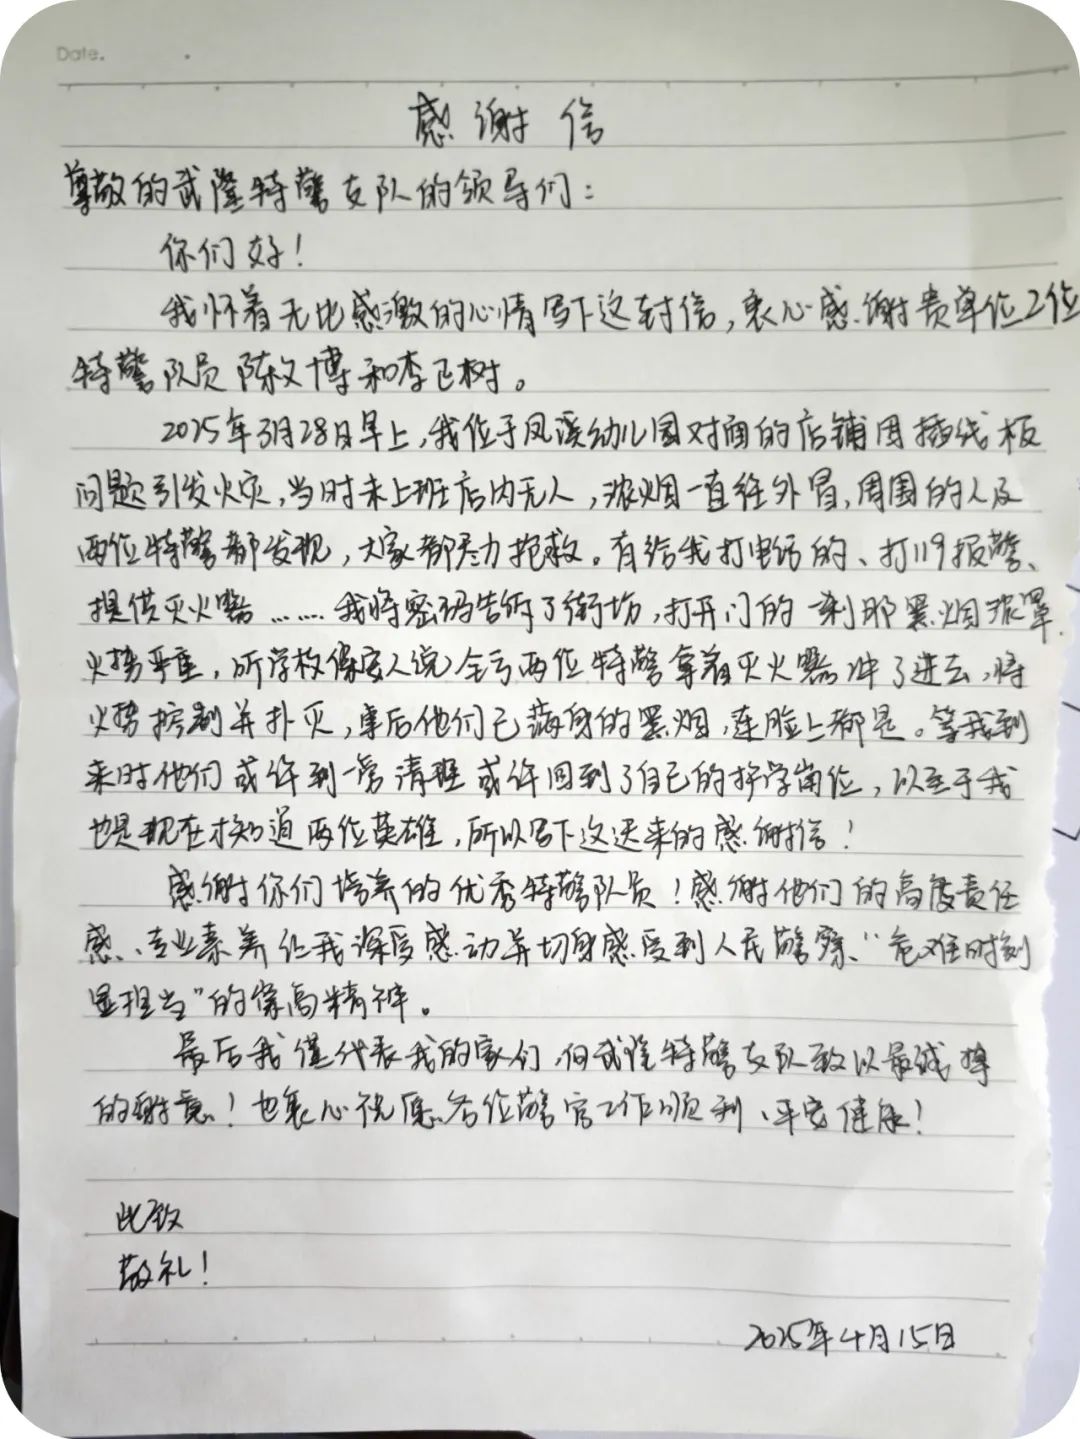 Date.
感谢信
尊敬的武隆特警支队的领导们：
你们好！
我怀着无比感激的心情写下这封信，衷心感谢贵单位2位
特警队员陈文博和李正树。
2025年3月28日早上，我位于凤溪幼儿园对面的店铺因插线板
问题引发火灾，当时未上班店内无人，浓烟一直往外冒，周围的人及
两位特警都发现，大家都尽力抢救。有给我打电话的、打119报警、
提供灭火器……我将密码告诉了街坊，打开门的一刹那黑烟浓罩
火势严重，听学校保安人说全亏两位特警拿着灭火器冲了进去，将
火势控制并扑灭，事后他们已满身的黑烟，连脸上都是。等我到
来时他们或许到一旁清理或许回到了自己的护学岗位，以至于我
也是现在才知道两位英雄，所以写下这迟来的感谢信！
感谢你们培养的优秀特警队员！感谢他们的高度责任
感、专业素养让我深受感动并切身感受到人民警察、“危难时刻
显担当”的崇高精神。
最后我仅代表我的家人们，向武隆特警支队致以最诚挚
的谢意！也衷心祝愿各位警官工作顺利、平安健康！
此致
敬礼！
2025年4月15日